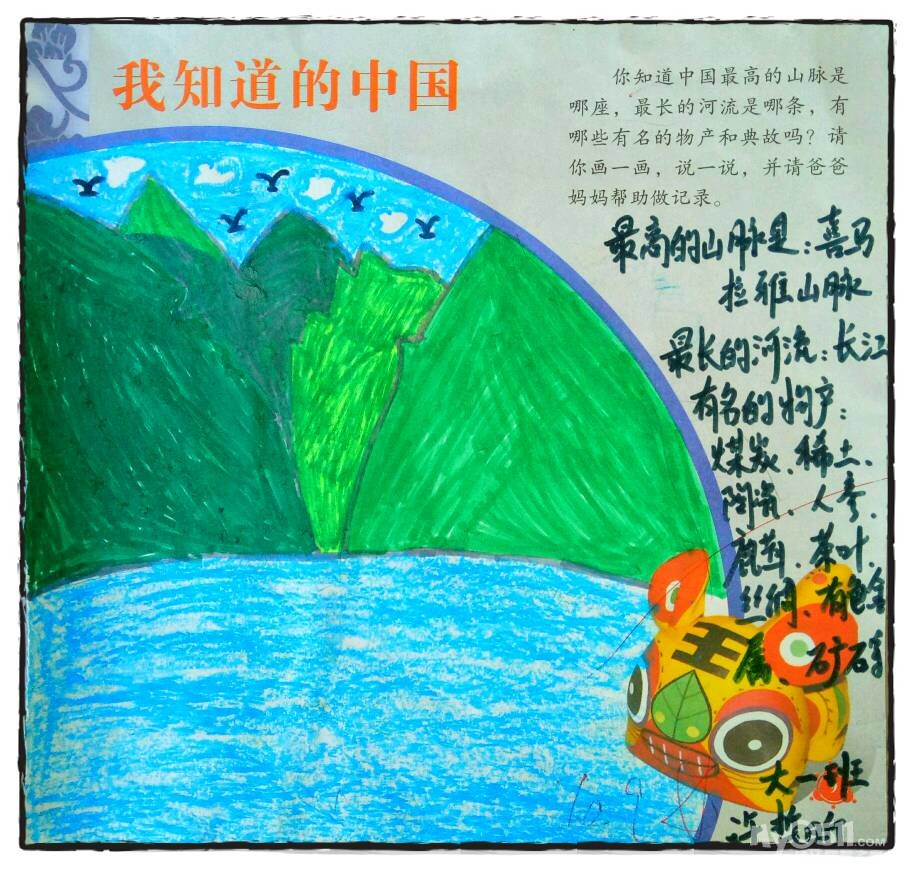 我知道的中国
你知道中国最高的山脉是
哪座，最长的河流是哪条，有
哪些有名的物产和典故吗？请
你画一画，说一说，并请爸爸
妈妈帮助做记录。
最高的山脉是：喜马
拉雅山脉
最长的河流：长江
有名的物产：
煤炭、稀土、
陶瓷、人参、
鹿茸、茶叶、
丝绸、有色金
属、矿石
王
大一班